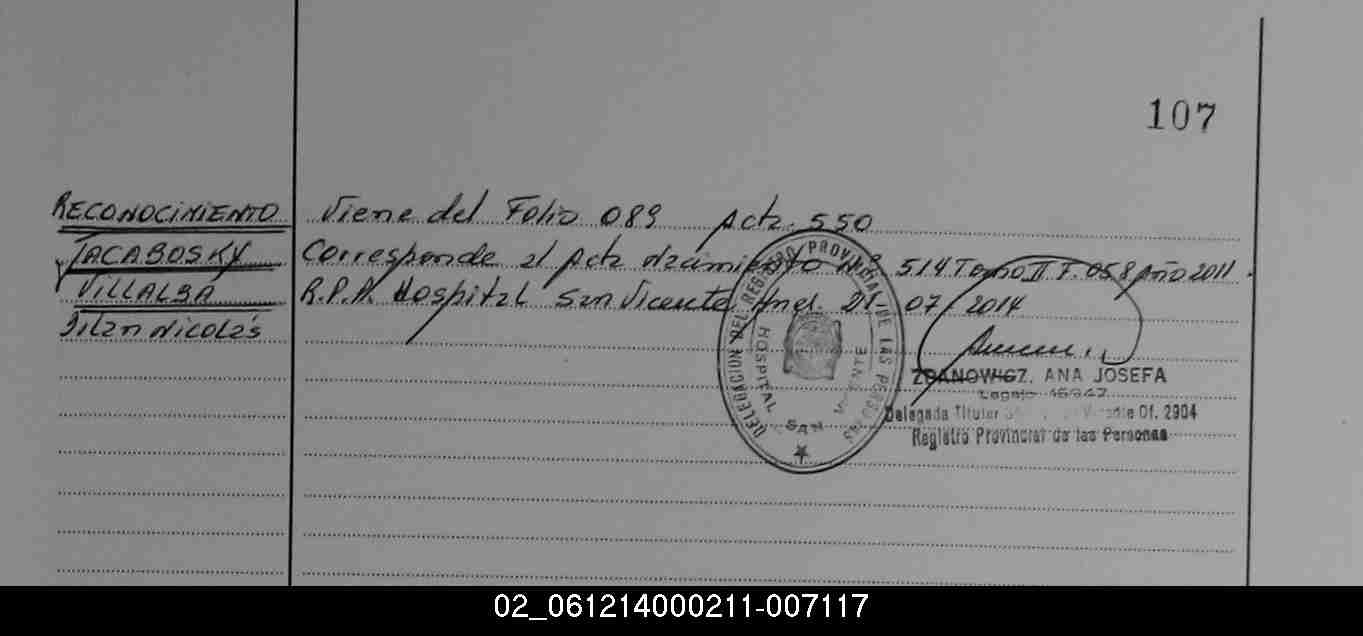 107
RECONOCIMIENTO Viene del Folio 089 Acta 550
JACABOSKY Corresponde al Acta Nacimiento Nº 514 Tomo II F. 058 Año 2011.
Y VILLALBA R.P.A. Hospital San Vicente 21-07/2014
Nicolás
DELEGACION DEL REGISTRO PROVINCIAL DE LAS PERSONAS
HOSPITAL SAN VICENTE
ZDANOWICZ, ANA JOSEFA
Legajo
Delegada Titular Of. 2904
Registro Provincial de las Personas
02_061214000211-007117